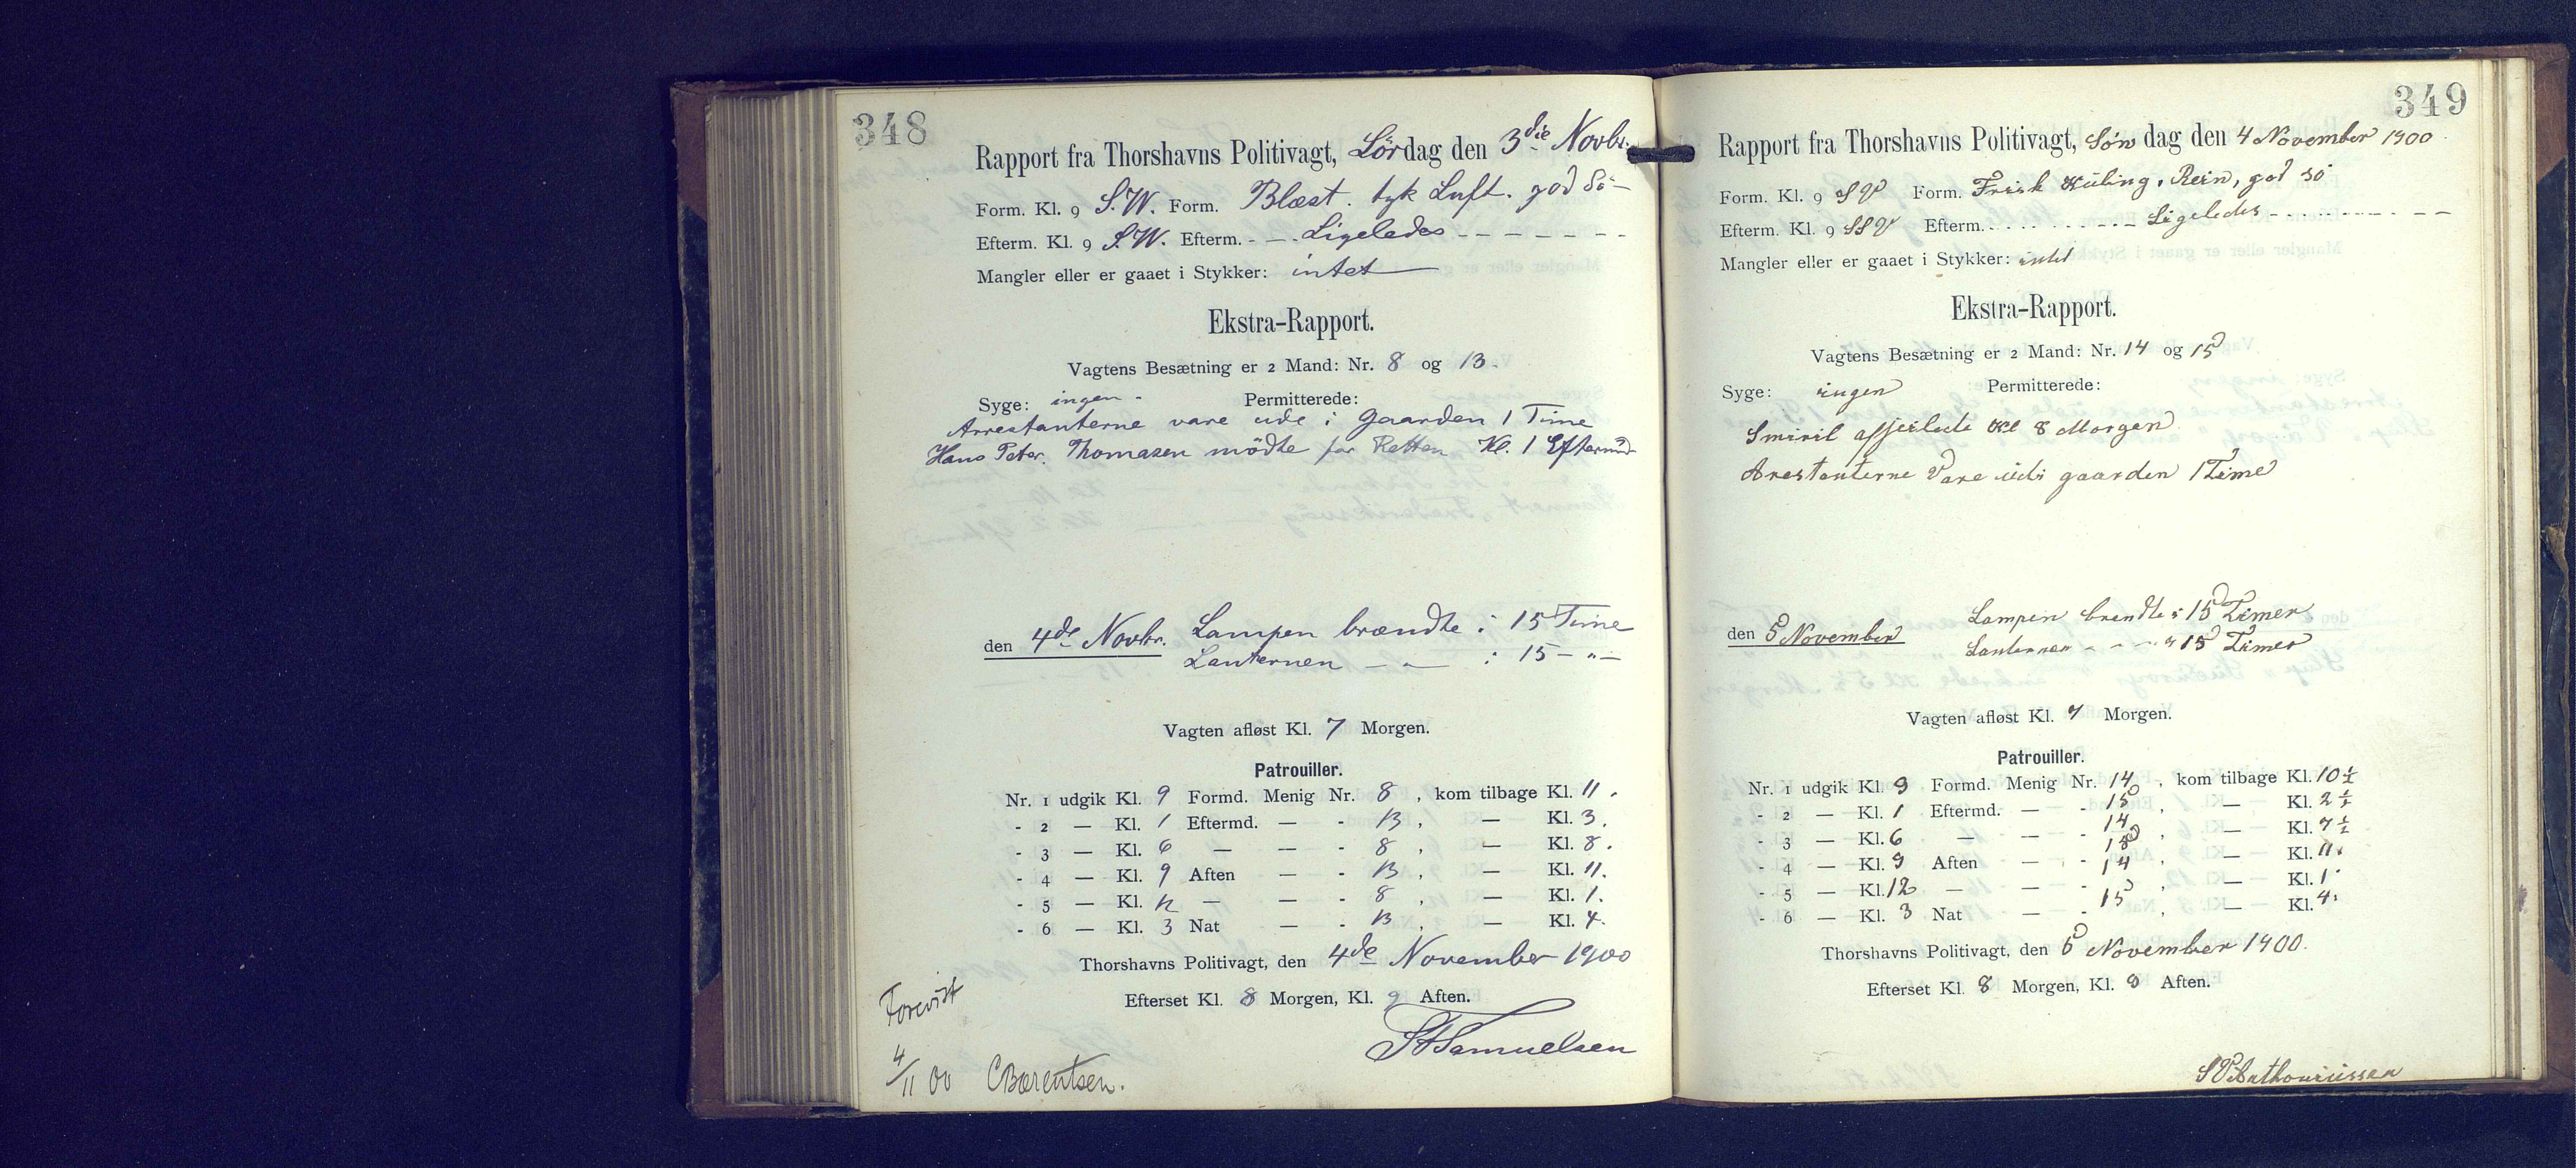 348
Rapport fra Thorshavns Politivagt, Lördag den 3die Novbr.
Form. Kl. 9 S.W. Form. Blæst. tyk Luft. god Sö -
Efterm. Kl. 9 S.W. Efterm. - - - Ligeledes - - - - - - -
Mangler eller er gaaet i Stykker: intet
Ekstra-Rapport.
Vagtens Besætning er 2 Mand: Nr. 8 og 13.
Syge: ingen - Permitterede:
Arrestanterne vare ude i Gaarden 1 Time
Hans Peter. Thomasen mödte for Retten Kl. 1 Eftermd
den 4de Novbr. Lampen brændte i 15 Time
Lanternen — " — i 15 - " -
Vagten afløst Kl. 7 Morgen.
Patrouiller.
Nr. 1 udgik Kl. 9 Formd. Menig Nr. 8 , kom tilbage Kl. 11.
- 2 — Kl. 1 Eftermd. — - 13 , — Kl. 3.
- 3 — Kl. 6 — — - 8 , — Kl. 8.
- 4 — Kl. 9 Aften — - 13 , — Kl. 11.
- 5 — Kl. 12 — — - 8 , — Kl. 1.
- 6 — Kl. 3 Nat — - 13 , — Kl. 4.
Thorshavns Politivagt, den 4de November 1900
Efterset Kl. 8 Morgen, Kl. 9 Aften.
Samuelsen
Forevist
4/11 00 CBærentsen.
349
Rapport fra Thorshavns Politivagt, Søn dag den 4 November 1900
Form. Kl. 9 SV Form. Frisk Kuling, Rein, god sö
Efterm. Kl. 9 SSV Efterm. - - - - - - - Ligeledes - - - - - - - - -
Mangler eller er gaaet i Stykker: intet
Ekstra-Rapport.
Vagtens Besætning er 2 Mand: Nr. 14 og 15
Syge: ingen Permitterede:
Smiril afseilede Kl 8 Morgen
Arestanterne Vare udi gaarden 1 Time
den 5 November Lampen brendte i 15 Timer
Lanternen - - - " 15 Timer
Vagten afløst Kl. 7 Morgen.
Patrouiller.
Nr. 1 udgik Kl. 9 Formd. Menig Nr. 14 , kom tilbage Kl. 10 ½
- 2 — Kl. 1 Eftermd. — - 15 , — Kl. 2 ½
- 3 — Kl. 6 — — - 14 , — Kl. 7 ½
- 4 — Kl. 9 Aften — - 15 , — Kl. 11.
- 5 — Kl. 12 — — - 14 , — Kl. 1.
- 6 — Kl. 3 Nat — - 15 , — Kl. 4.
Thorshavns Politivagt, den 5 November 1900.
Efterset Kl. 8 Morgen, Kl. 9 Aften.